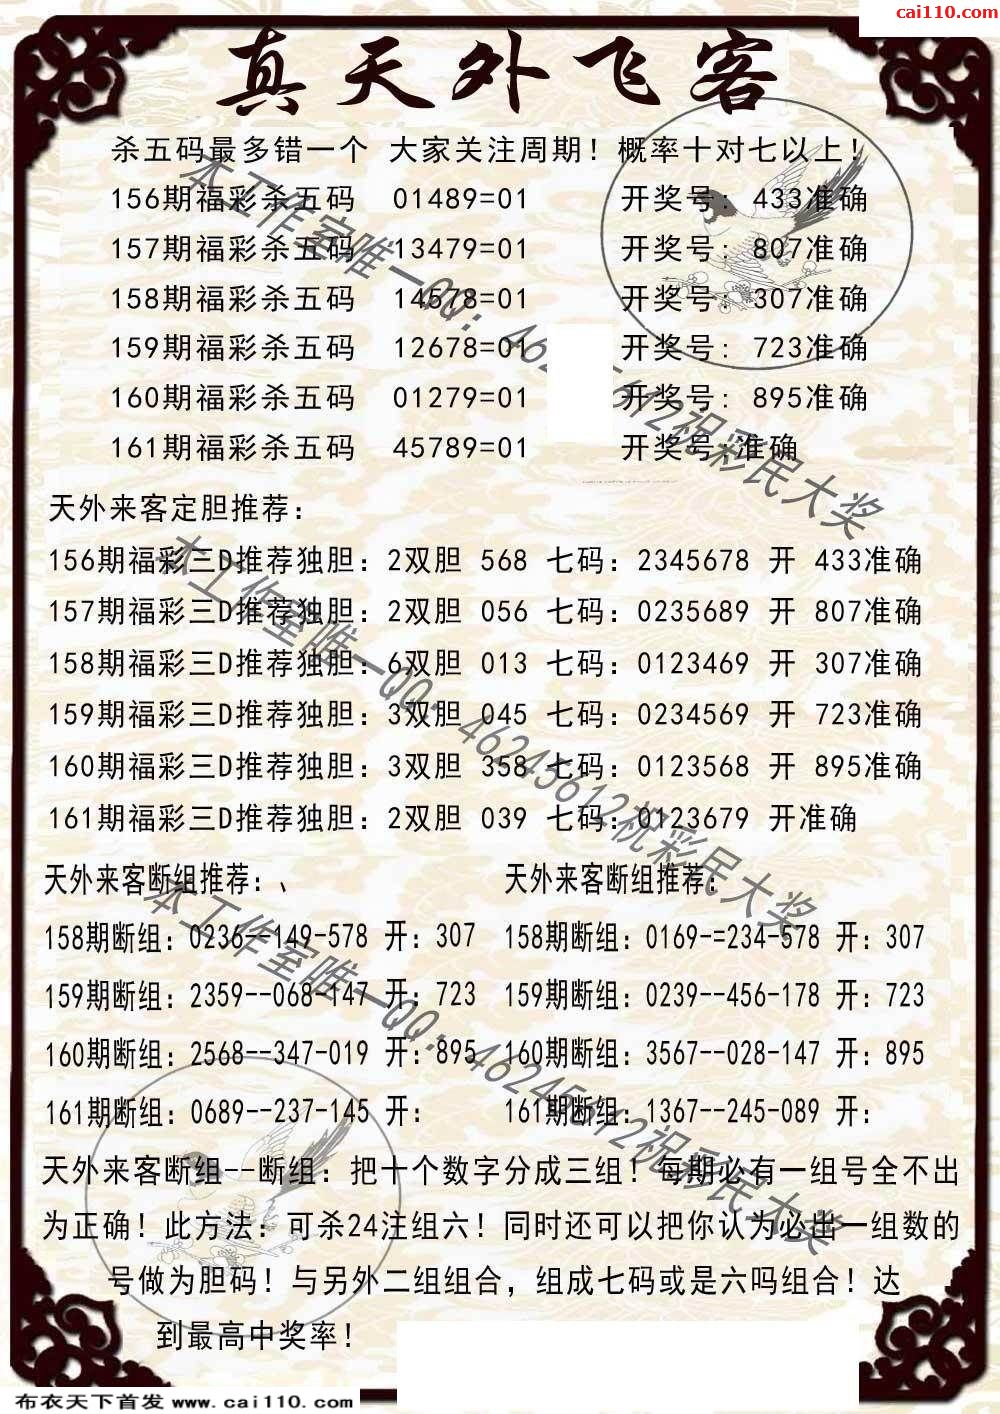 cai110.com
真天外飞客
杀五码最多错一个 大家关注周期！概率十对七以上！
156期福彩杀五码 01489=01 开奖号：433准确
157期福彩杀五码 13479=01 开奖号：807准确
158期福彩杀五码 14578=01 开奖号：307准确
159期福彩杀五码 12678=01 开奖号：723准确
160期福彩杀五码 01279=01 开奖号：895准确
161期福彩杀五码 45789=01 开奖号:准确
天外来客定胆推荐：
156期福彩三D推荐独胆：2双胆 568 七码：2345678 开 433准确
157期福彩三D推荐独胆：2双胆 056 七码：0235689 开 807准确
158期福彩三D推荐独胆：6双胆 013 七码：0123469 开 307准确
159期福彩三D推荐独胆：3双胆 045 七码：0234569 开 723准确
160期福彩三D推荐独胆：3双胆 358 七码：0123568 开 895准确
161期福彩三D推荐独胆：2双胆 039 七码：0123679 开准确
天外来客断组推荐：、 天外来客断组推荐：
158期断组：0236--149-578 开：307 158期断组：0169-=234-578 开：307
159期断组：2359--068-147 开：723 159期断组：0239--456-178 开：723
160期断组：2568--347-019 开：895 160期断组：3567--028-147 开：895
161期断组：0689--237-145 开： 161期断组：1367--245-089 开：
天外来客断组--断组：把十个数字分成三组！每期必有一组号全不出
为正确！此方法：可杀24注组六！同时还可以把你认为必出一组数的
号做为胆码！与另外二组组合，组成七码或是六吗组合！达
到最高中奖率！
本工作室唯一QQ：46245612祝彩民大奖
本工作室唯一QQ：46245612祝彩民大奖
本工作室唯一QQ：46245612祝彩民大奖
布衣天下首发 www.cai110.com